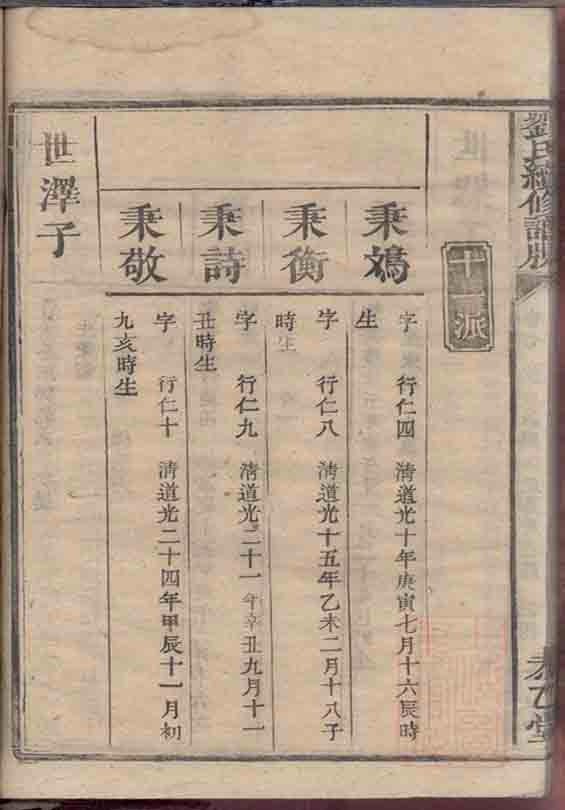 劉氏續修譜牒
乙堂
十一派
秉鴻
字 行仁四 清道光十年庚寅七月十六辰時
生
秉衡
字 行仁八 清道光十五年乙未二月十八子
時生
秉詩
字 行仁九 清道光二十一年辛丑九月十一
丑時生
秉敬
字 行仁十 清道光二十四年甲辰十一月初
九亥時生
世澤子